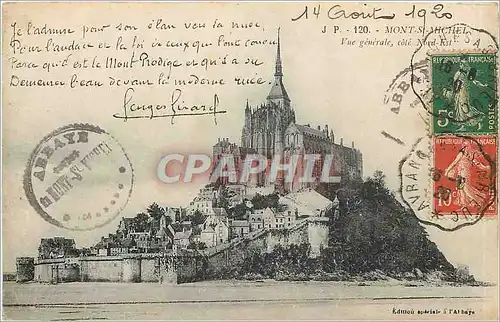 14 Aout 1920
J P. - 120. - MONT-St-MICHEL
Vue générale, côté Nord-Est
Je l'admire pour son élan vers la nue,
Pour l'audace et la foi de ceux qui l'ont conçu
Parce qu'il est le Mont Prodige et qu'il a su
Demeurer beau devant la moderne ruée.
Georges Girard
ABBAYE
du MONT-St-MICHEL
ABBAYE
REPUBLIQUE FRANÇAISE
5c
REPUBLIQUE FRANÇAISE
10c
AVRANCHES
CARTE CPHIL
Edition spéciale à l'Abbaye